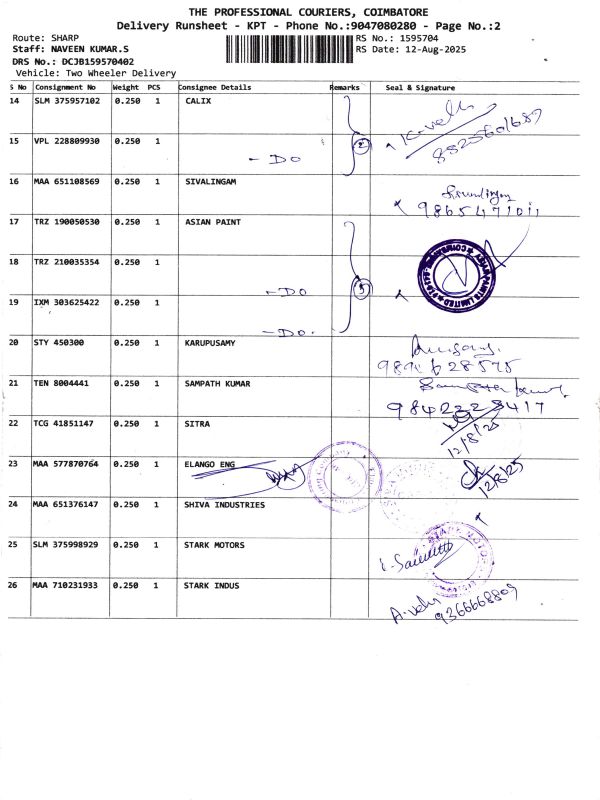 THE PROFESSIONAL COURIERS, COIMBATORE
Delivery Runsheet - KPT - Phone No.:9047080280 - Page No.:2
Route: SHARP RS No.: 1595704
Staff: NAVEEN KUMAR.S RS Date: 12-Aug-2025
DRS No.: DCJB159570402
Vehicle: Two Wheeler Delivery
S No Consignment No Weight PCS Consignee Details Remarks Seal & Signature
14 SLM 375957102 0.250 1 CALIX K-velu
15 VPL 228809930 0.250 1 - Do 2
16 MAA 651108569 0.250 1 SIVALINGAM
17 TRZ 190050530 0.250 1 ASIAN PAINT
18 TRZ 210035354 0.250 1 - Do 3
19 IXM 303625422 0.250 1 - Do.
20 STY 450300 0.250 1 KARUPUSAMY
21 TEN 8004441 0.250 1 SAMPATH KUMAR Sampath kumar
9842228417
22 TCG 41851147 0.250 1 SITRA 12/8/25
23 MAA 577870764 0.250 1 ELANGO ENG 12/8/25
24 MAA 651376147 0.250 1 SHIVA INDUSTRIES
25 SLM 375998929 0.250 1 STARK MOTORS
26 MAA 710231933 0.250 1 STARK INDUS A.velu
9366668809